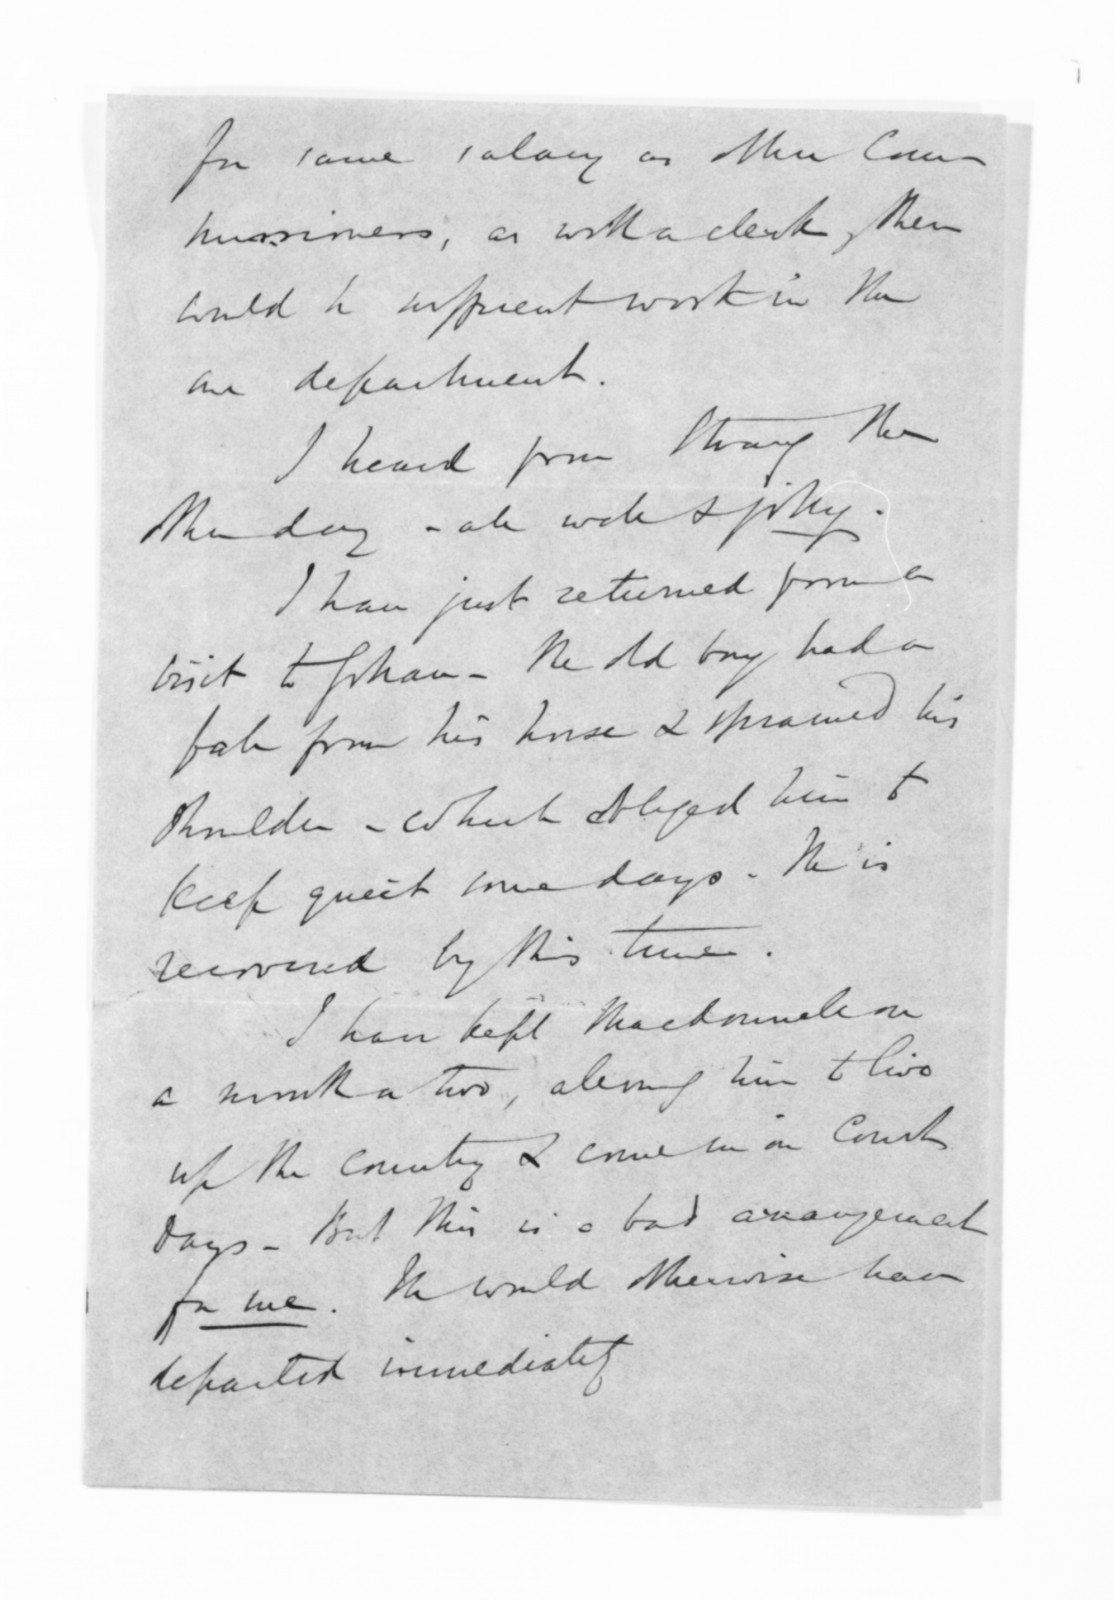 for same salary as other Com-
missioners, as with a clerk, there
would be sufficient work in the
one department.
I heard from Strang the
other day - all well & jolly.
I have just returned from a
visit to Johan - The old boy had a
fall from his horse & sprained his
shoulder - which obliged him to
keep quiet some days. He is
recovered by this time.
I have kept Macdonnell on
a month or two, allowing him to live
up the country & come in on Court
Days - But this is a bad arrangement
for me. He would otherwise have
departed immediately